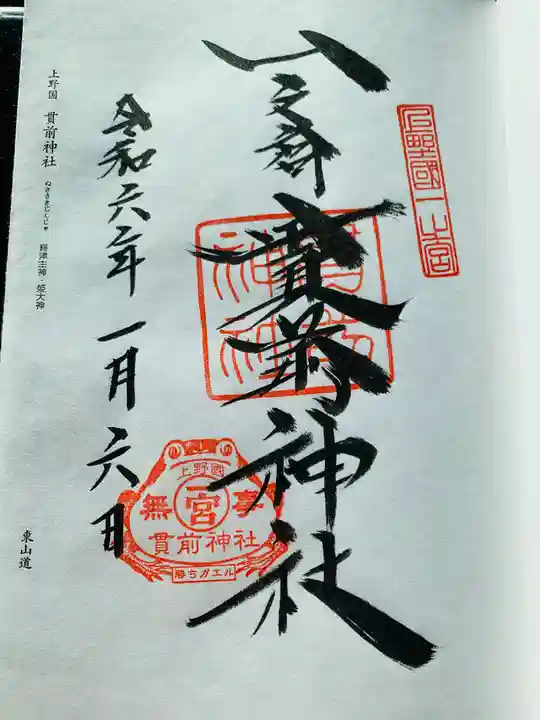 上野國一之宮
一之宮
貫前神社
貫前神社
上野國
一宮
無事
貫前神社
勝ちガエル
令和六年一月六日
上野国 貫前神社 ぬきさきじんじゃ 経津主神・姫大神
東山道